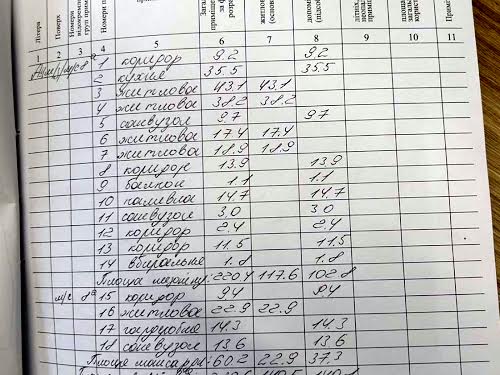 Літера Поверх Номери
1 2 3 4 5 6 7 8 9 10 11
1 коридор 9.2 9.2
2 кухня 35.5 35.5
3 житлова 43.1 43.1
4 житлова 38.2 38.2
5 санвузол 9.7 9.7
6 житлова 17.4 17.4
7 житлова 18.9 18.9
8 коридор 13.9 13.9
9 балкон 1.1 1.1
10 14.7 14.7
11 санвузол 3,0 3.0
12 коридор 2.4 2.4
13 коридор 11.5 11.5
14 вбиральня 1.8 1.8
Площа 220.4 117.6 102.8
м/с 8а 15 коридор 9.4 9.4
16 житлова 22.9 22.9
17 гардеробна 14.3 14.3
18 санвузол 13.6 13.6
Площа мансарди: 60.2 22.9 37.3